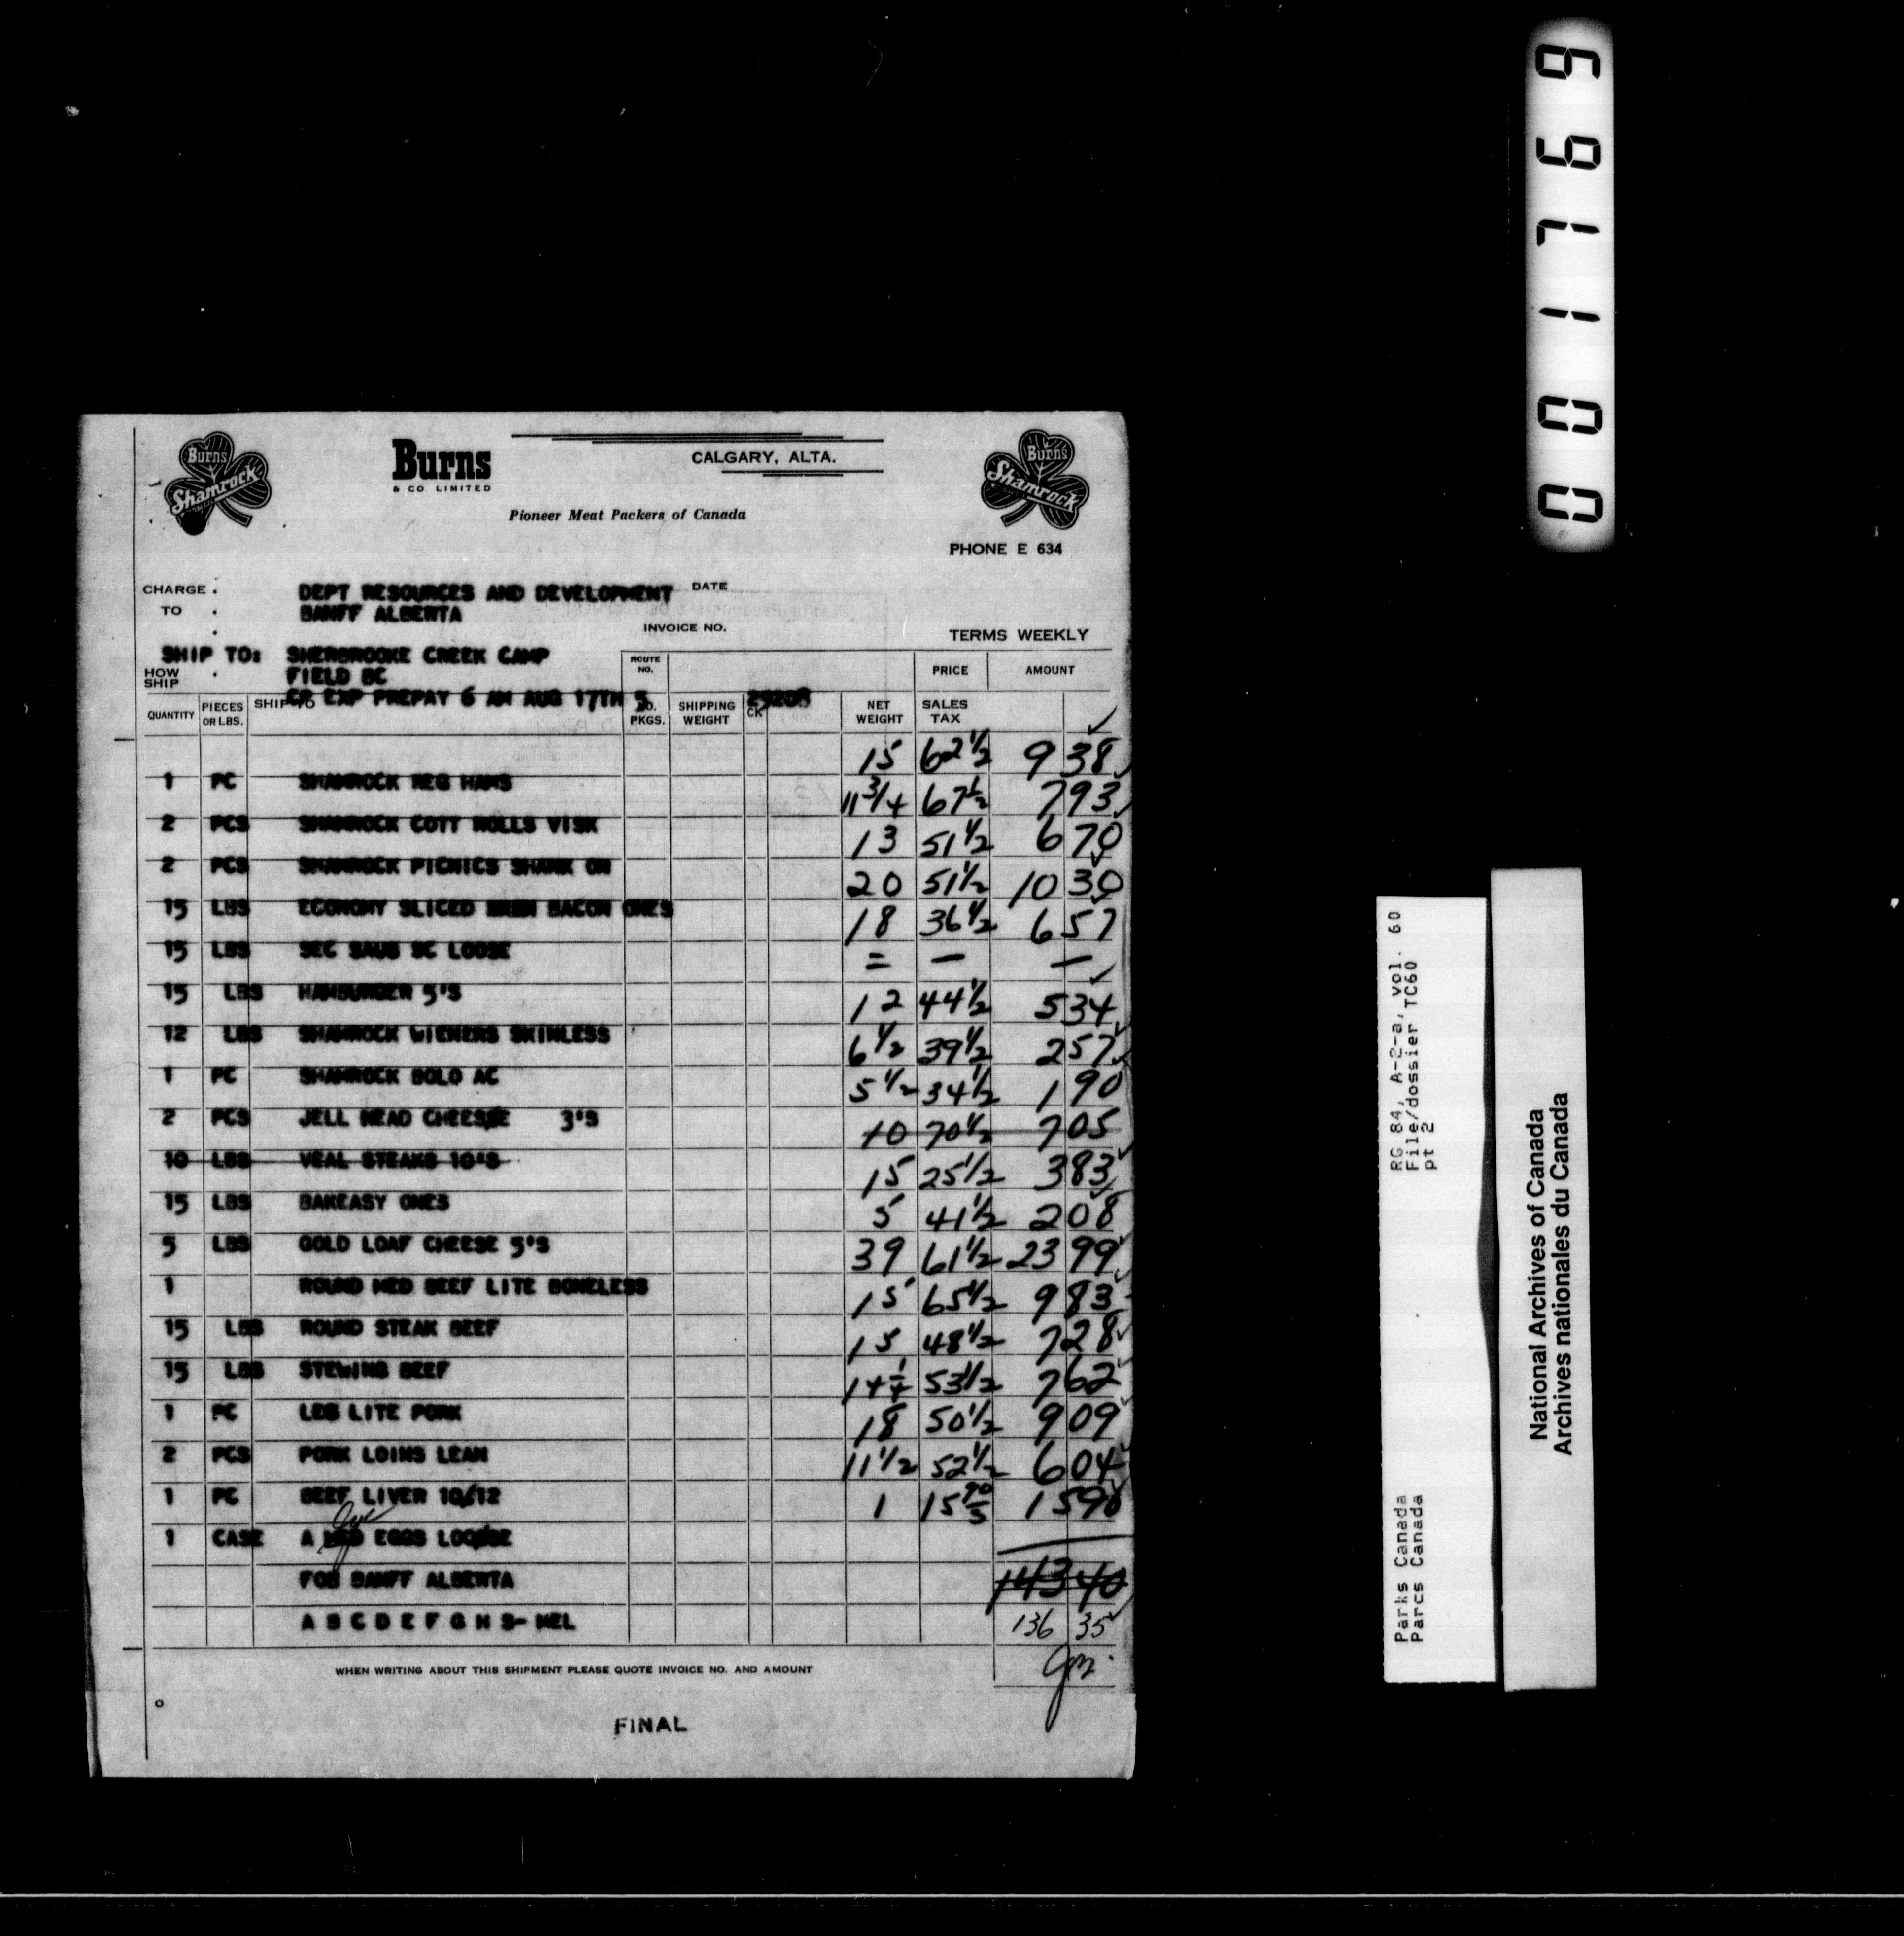 Burns
Shamrock
Burns
& CO. LIMITED
CALGARY, ALTA.
Burns
Shamrock
Pioneer Meat Packers of Canada
PHONE E 634
CHARGE TO
DEPT RESOURCES AND DEVELOPMENT
BANFF ALBERTA
DATE
INVOICE NO.
TERMS WEEKLY
SHIP TO: SHERBROOKE CREEK CAMP
HOW SHIP
FIELD BC
ROUTE NO.
PRICE
AMOUNT
SHIP TO
CP EXP PREPAY 6 AM AUG 17TH 5
QUANTITY
PIECES OR LBS.
NO. PKGS.
SHIPPING WEIGHT
CK
NET WEIGHT
SALES TAX
15 62 1/2 9 38
1 PC SHAMROCK REG HAMS
11 3/4 67 1/2 7 93
2 PCS SHAMROCK COTT ROLLS VISK
13 51 1/2 6 70
2 PCS SHAMROCK PICNICS SHANK ON
20 51 1/2 10 30
15 LBS ECONOMY SLICED BACON ONES
18 36 1/2 6 57
15 LBS SEC SAUS SC LOOSE
= — —
15 LBS HAMBURGER 5'S
12 44 1/2 5 34
12 LBS SHAMROCK WIENERS SKINLESS
6 1/2 39 1/2 2 57
1 PC SHAMROCK BOLO AC
5 1/2 34 1/2 1 90
2 PCS JELL HEAD CHEESE 3'S
10 70 1/2 7 05
10 LBS VEAL STEAKS 10'S
15 25 1/2 3 83
15 LBS BAKEASY ONES
5 41 1/2 2 08
5 LBS GOLD LOAF CHEESE 5'S
39 61 1/2 23 99
1 ROUND MED BEEF LITE BONELESS
15 65 1/2 9 83
15 LBS ROUND STEAK BEEF
15 48 1/2 7 28
15 LBS STEWING BEEF
14 1/4 53 1/2 7 62
1 PC LEG LITE PORK
18 50 1/2 9 09
2 PCS PORK LOINS LEAN
11 1/2 52 1/2 6 04
1 PC BEEF LIVER 10/12
1 15 90 15 90
1 CASE A EGGS LOOSE
FOB BANFF ALBERTA
143 40
A B C D E F G H S- MEL
136 35
WHEN WRITING ABOUT THIS SHIPMENT PLEASE QUOTE INVOICE NO. AND AMOUNT
FINAL
001769
RG 84, A-2-a, vol. 60
File/dossier TC60
pt 2
Parks Canada
Parcs Canada
National Archives of Canada
Archives nationales du Canada